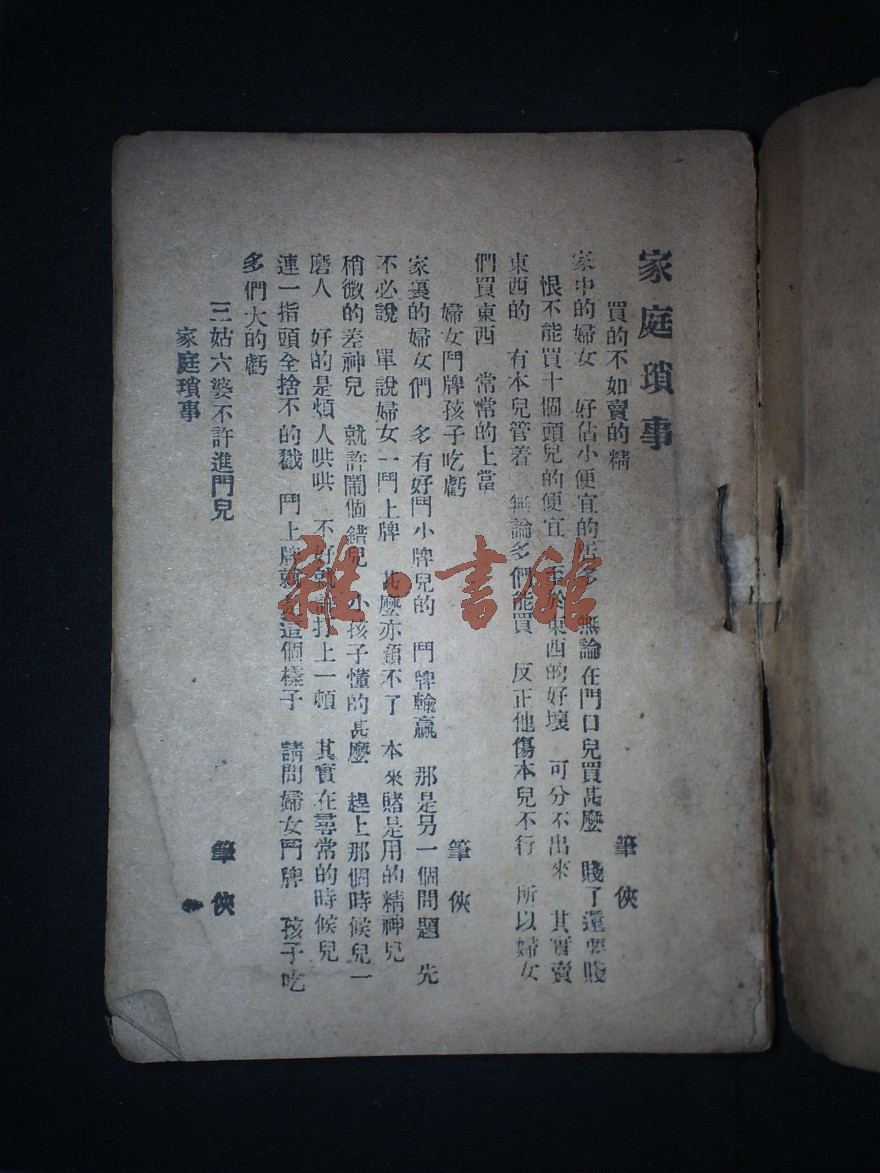 家庭瑣事
買的不如賣的精 筆俠
家中的婦女 好佔小便宜的居多 無論在門口兒買甚麼 賤了還要賤
恨不能買十個頭兒的便宜 至於東西的好壞 可分不出來 其實賣
東西的 有本兒管着 無論多們能買 反正他傷本兒不行 所以婦女
們買東西 常常的上當
婦女鬥牌孩子吃虧 筆俠
家裏的婦女們 多有好鬥小牌兒的 鬥牌輸贏 那是另一個問題 先
不必說 單說婦女一鬥上牌 甚麼亦顧不了 本來賭是用的精神兒
稍微的差神兒 就許鬧個錯兒 小孩子懂的甚麼 趕上那個時候兒一
磨人 好的是煩人哄哄 不好就許打上一頓 其實在尋常的時候兒
連一指頭全捨不的戳 鬥上牌就這個樣子 請問婦女鬥牌 孩子吃
多們大的虧
三姑六婆不許進門兒 筆俠
家庭瑣事
雜·書館